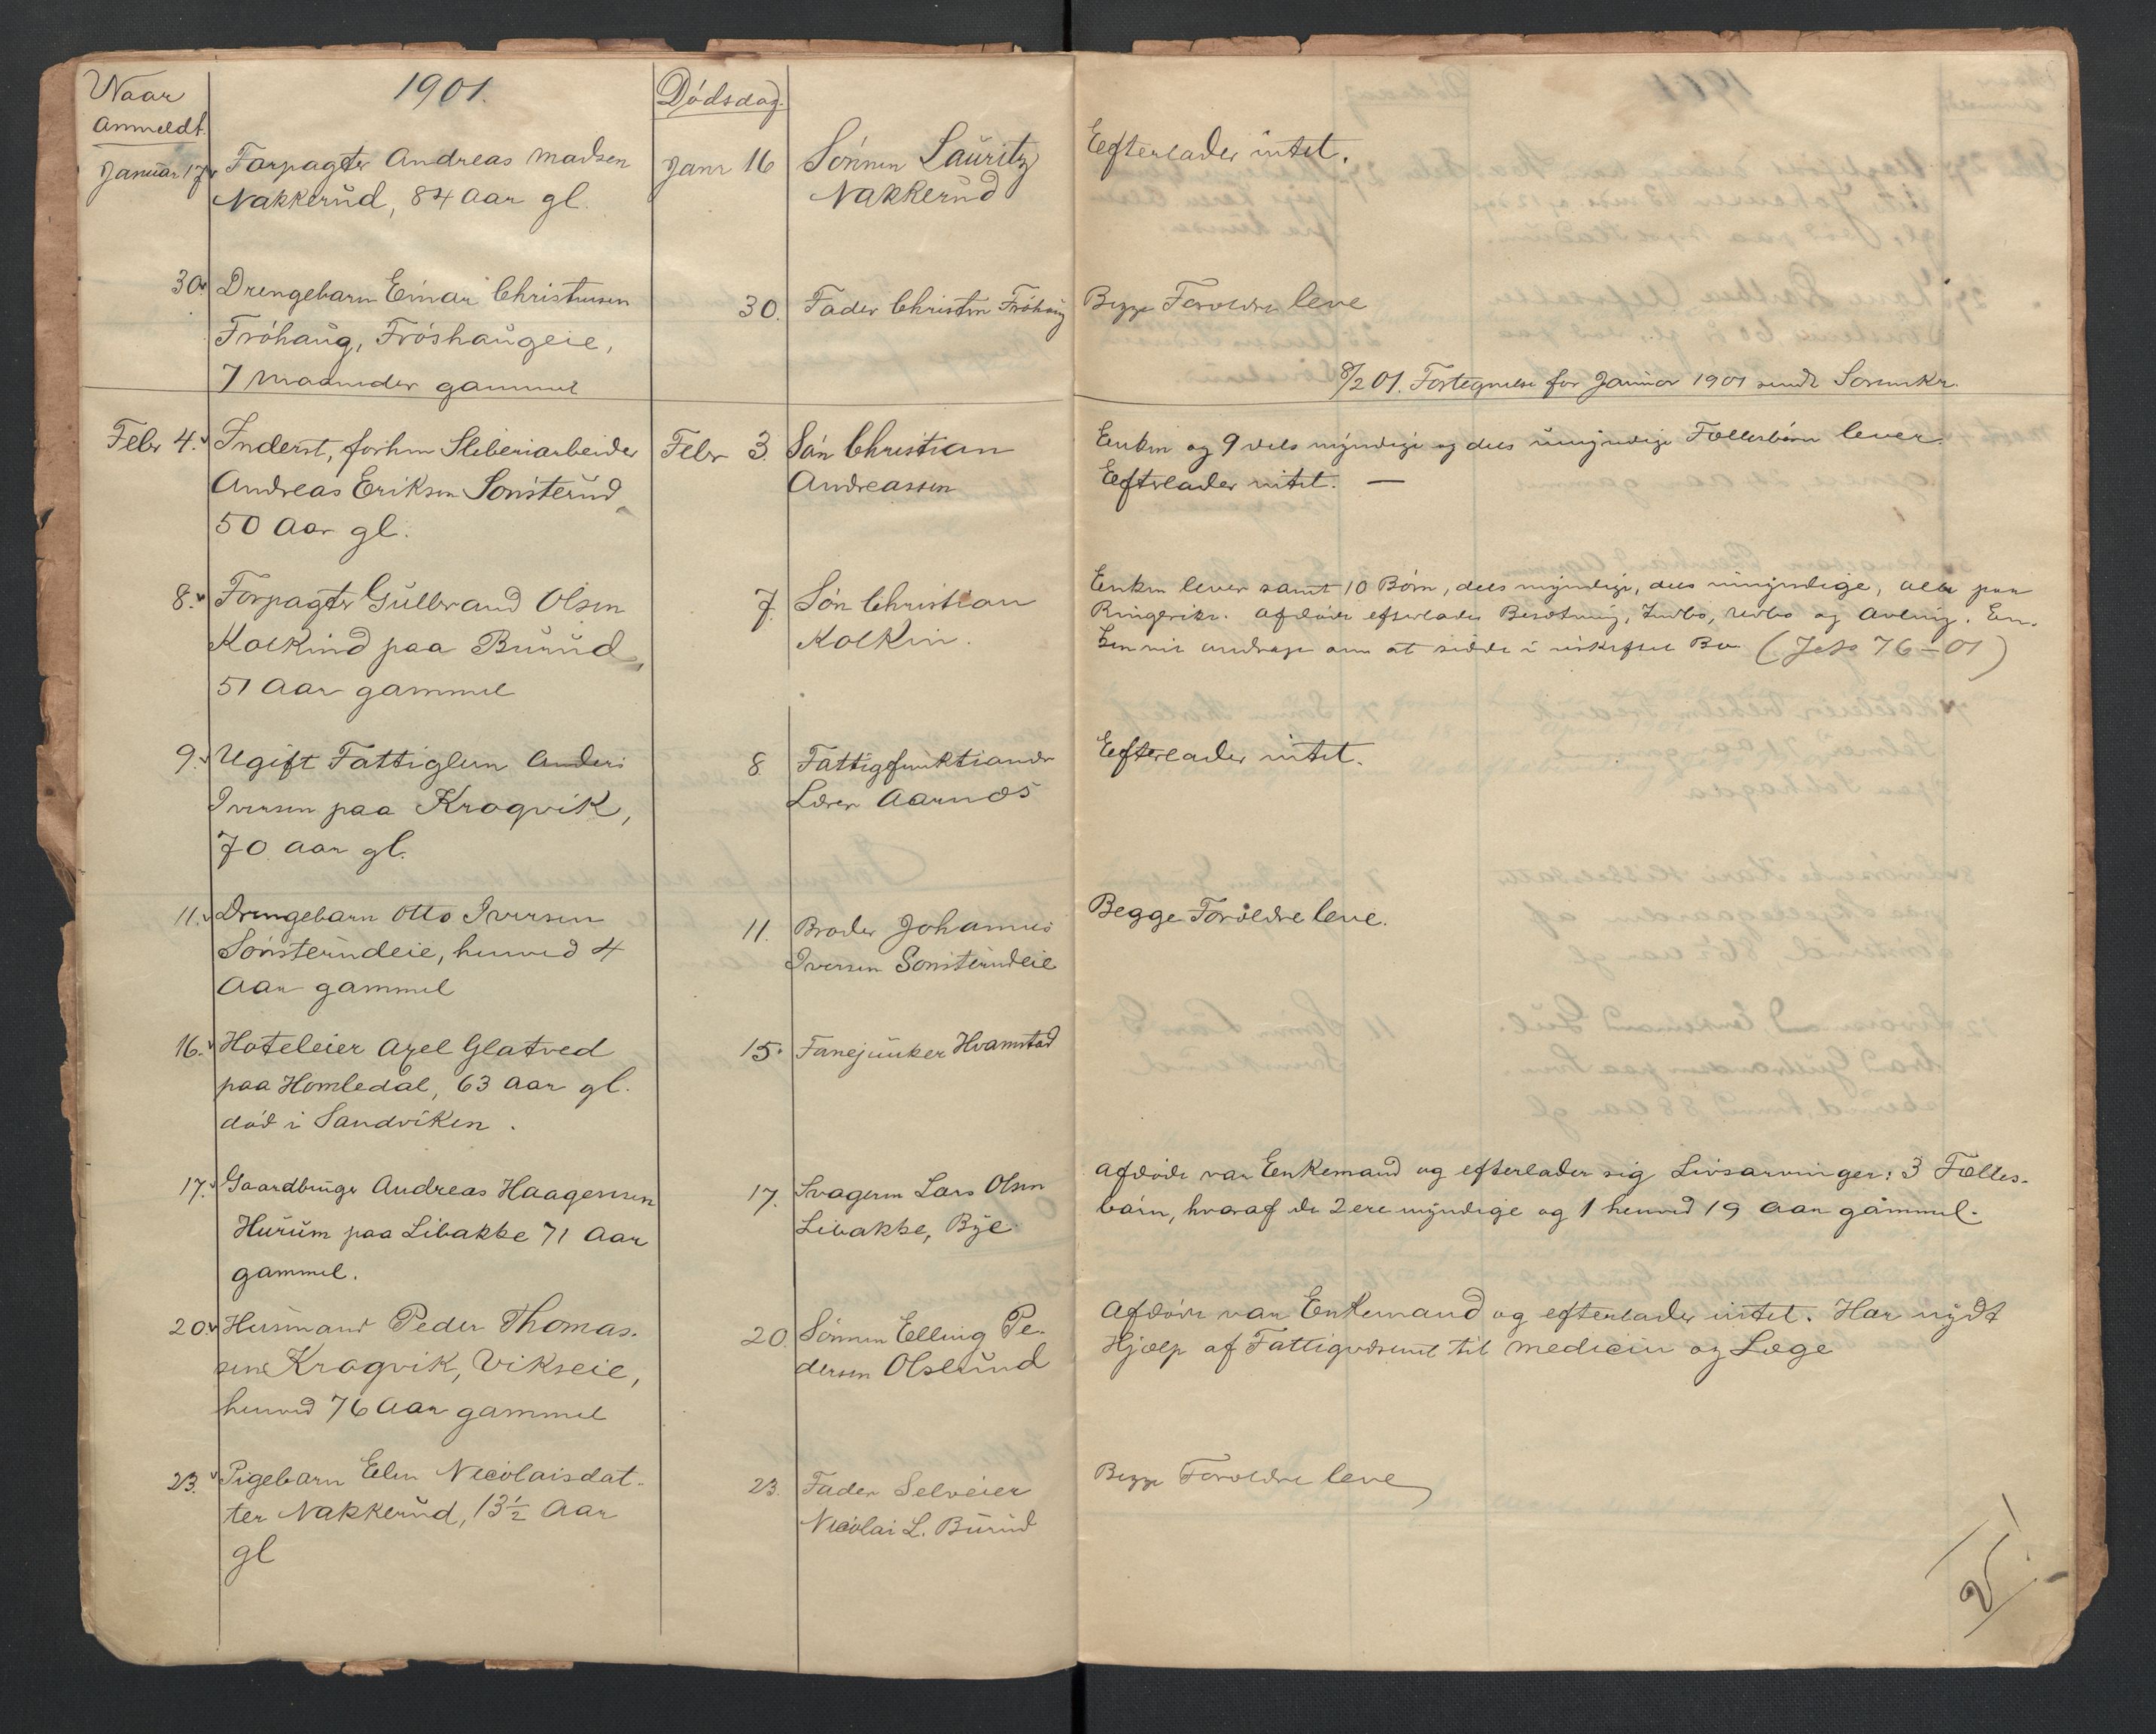 Naar
anmeldt.
1901.
Dödsdag.
Januar 17
Forpagter Andreas Madsen
Nakkerud, 84 Aar gl.
Janr 16
Sönnen Lauritz
Nakkerud
Efterlader intet.
30.
Drengebarn Einar Christensen
Fröhaug, Fröshaugeie,
7 Maaneder gammel
30.
Fader Christen Fröhaug
Begge Forældre leve
8/2 01. Fortegnelse for Januar 1901 sendt Sorenskr.
Febr 4.
Inderst, forhen Sliberiarbeider
Andreas Eriksen Sönsterud
50 Aar gl.
Febr 3.
Sön Christian
Andreassen
Enken og 9 dels myndige og dels umyndige Fællesbörn lever.
Efterlader intet. —
8.
Forpagter Gulbrand Olsen
Kolkind paa Burud,
51 Aar gammel
7.
Sön Christian
Kolkin.
Enken lever samt 10 Börn, dels myndige, dels umyndige, alle paa
Ringerike. Afdöde efterlader Besætning, Indbo, Udbo og Avling. En-
ken vil andrage om at sidde i uskiftet Bo (Jr 76-01)
9.
Ugift Fattiglem Anders
Iversen paa Krogvik,
70 Aar gl.
8
Fattigfunktionær
Lærer Aarnes
Efterlader intet.
11.
Drengebarn Otto Iversen
Sönsterudeie, henved 4
Aar gammel
11.
Broder Johannes
Iversen Sönsterudeie
Begge Forældre leve.
16.
Hoteleier Axel Glatved
paa Homledal, 63 Aar gl.
död i Sandviken.
15.
Fanejunker Hvamstad
17.
Gaardbruger Andreas Haagensen
Hurum paa Libakke 71 Aar
gammel.
17.
Svageren Lars Olsen
Libakke, Bye
Afdöde var Enkemand og efterlader sig Livsarvinger: 3 Fælles-
börn, hvoraf de 2 ere myndige og 1 henved 19 Aar gammel.
20.
Husmand Peder Thomas-
sen Krogvik, Vikseie,
henved 76 Aar gammel
20.
Sönnen Elling Pe-
dersen Olslund
Afdöde var Enkemand og efterlader intet. Har nydt
Hjælp af Fattigvæsenet til Medicin og Læge
23.
Pigebarn Elen Nicolaisdat-
ter Nakkerud, 13 1/2 Aar
gl
23.
Fader Selveier
Nicolai L. Burud
Begge Forældre leve